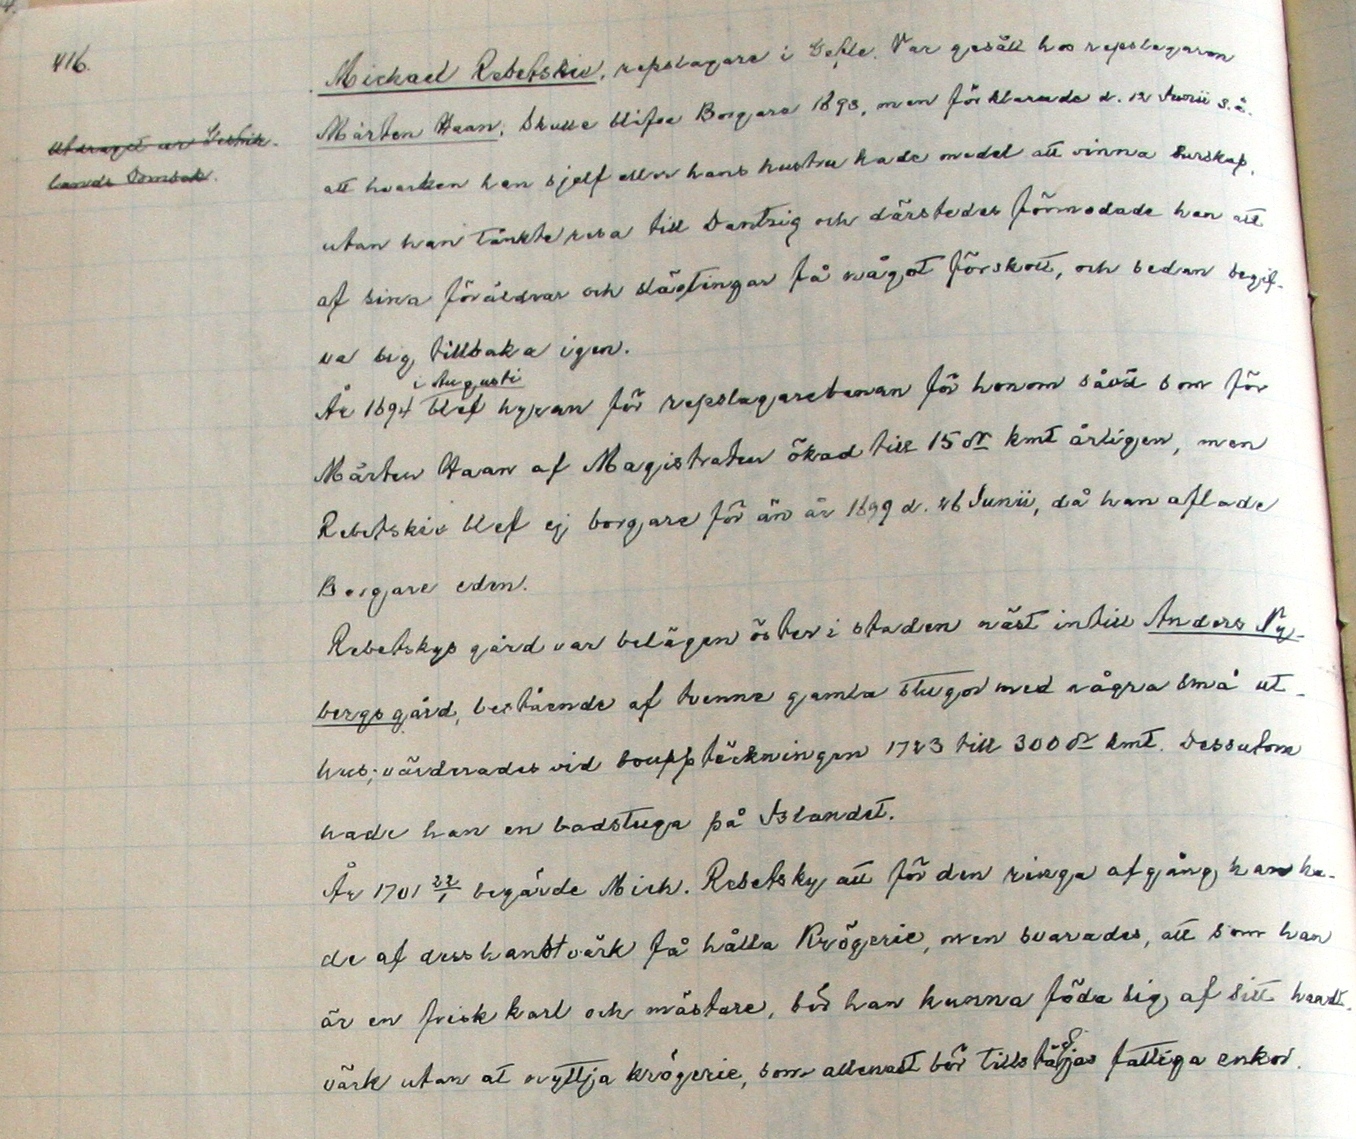 416.
Mickael Rebetskie, repslagare i Gefle. Var gesäll hos repslagaren
Utdraget ur Gestrik-
lands Dombok.
Mårten Haan. Skulle blifva Borgare 1693, men förklarade d. 12 Junii s.å.
att hvarken han sjelf eller hans hustru hade medel att vinna burskap,
utan han tänkte resa till Dantzig och därstedes förmodade han att
af sina föräldrar och slägtingar få något förskott, och sedan begif-
va sig tillbaka igen.
i Augusti
År 1694 blef hyran för repslagarebanan för honom såväl som för
Mårten Haan af Magistraten ökad till 15 dr kmt årligen, men
Rebetskie blef ej borgare för än år 1699 d. 26 Junii, då han aflade
Borgare eden.
Rebetskys gård var belägen öster i staden näst intill Anders Ny-
bergs gård, bestående af tvenne gamla stugor med några små ut-
hus; värderades vid bouppteckningen 1723 till 300 dr kmt. Dessutom
hade han en badstuga på Islandet.
År 1701 22/1 begärde Mich. Rebetsky att för den ringa afgång han ha-
de af dess handtvärk få hålla Krögerie, men svarades, att som han
är en frisk karl och mästare, bör han kunna föda sig af sitt handt-
värk utan at nyttja krögerie, som allenast bör tillstädjas fattiga enkor.